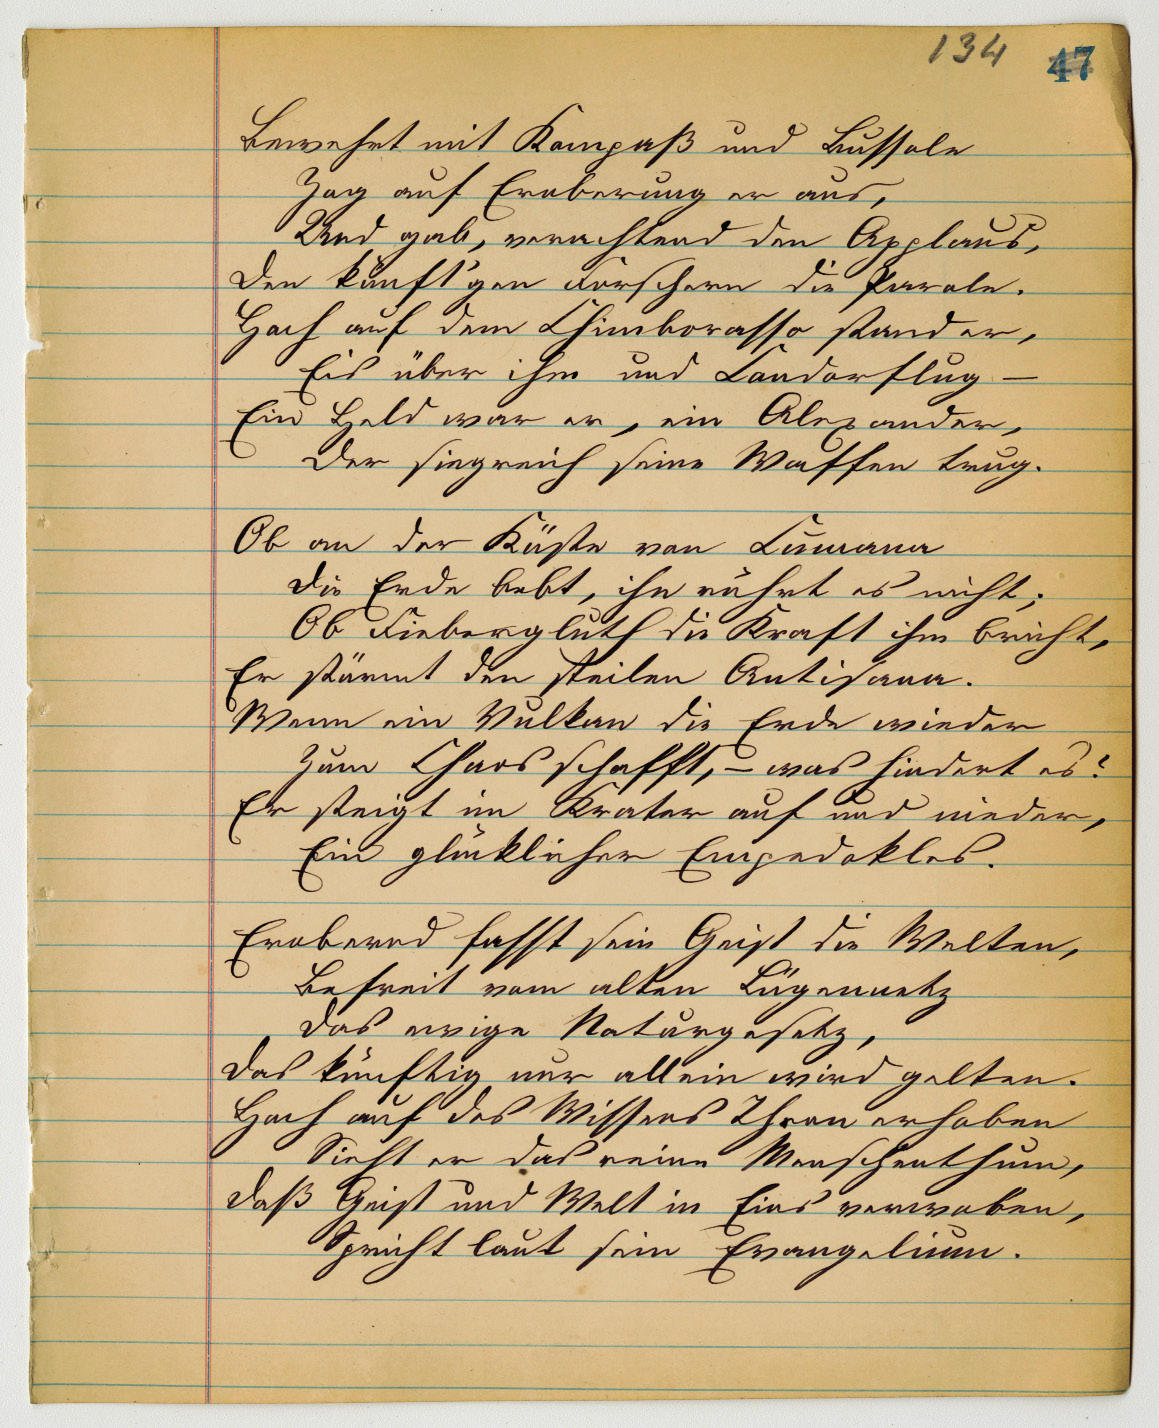 134 47
Bewehrt mit Kompaß und Bussole
Zog auf Eroberung er aus,
Und gab, verachtend den Applaus,
Den künft'gen Forschern die Parole.
Hoch auf dem Chimborasso stand er,
Eis über ihm und Condorflug —
Ein Held war er, ein Alexander,
Der siegreich seine Waffen trug.
Ob an der Küste von Cumana
Die Erde bebt, ihn rührt es nicht;
Ob Fiebergluth die Kraft ihm bricht,
Er stürmt den steilen Antisana.
Wenn ein Vulkan die Erde wieder
Zum Chaos schafft, – was hindert es?
Er steigt im Krater auf und nieder,
Ein glücklicher Empedokles.
Erobernd fasst sein Geist die Welten,
Befreit vom alten Lügennetz
Das ewige Naturgesetz,
Das künftig nur allein wird gelten.
Hoch auf des Wissens Thron erhoben
Sieht er das reine Menschenthum,
Daß Geist und Welt in Eins verwoben,
Spricht laut sein Evangelium.